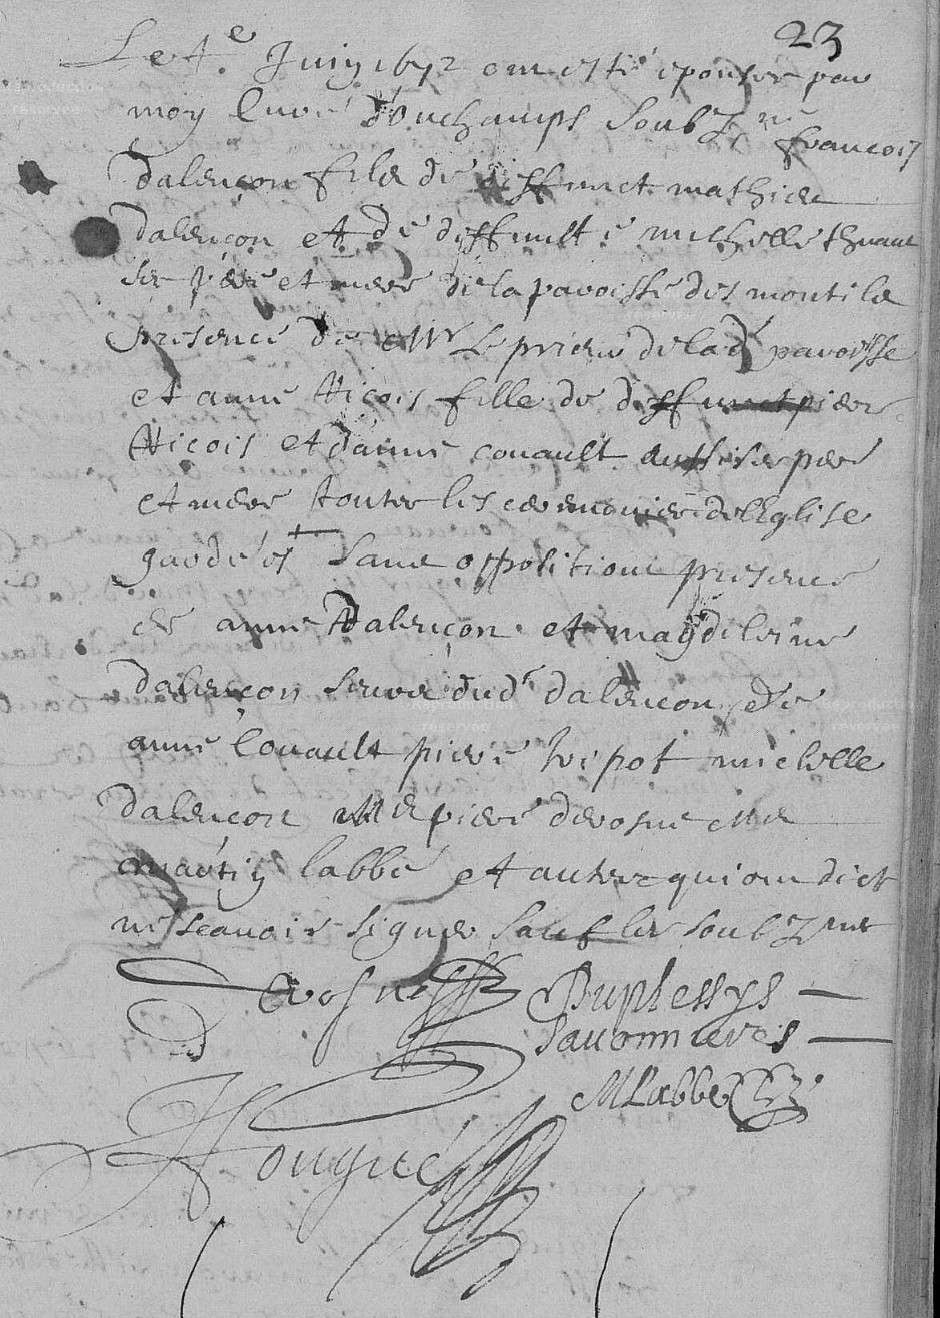 23
Le 4e Juin 1672 ont esté epouser par
moy Curé d'Ouchamps Soubz ne francois
Dalençon fils de deffunct mathieu
Dalençon et de deffuncte michelle
ses pere et mere de la paroisse des montils
presence de Mr Le prieur de lad paroisse
et anne Hicois fille de deffunct piere
Hicois et d'anne couault aussi ses pere
et mere toutes les ceremonies de l'Eglise
gardées sans oppositions presence
de anne Dalençon et magdeleine
Dalençon seurs dud dalencon, de
anne Couault piere Tripot michelle
dalencon Me piere devosne Me
martin labbé et autres qui ont dict
ne scavoir signer sauf les soubz nes
Devosnes Duplessys
Sauonnieres
MLabbe
Hougué